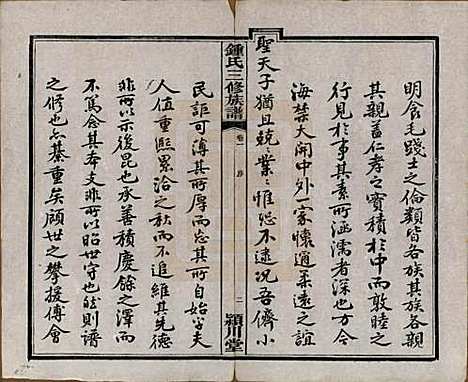 明食毛踐土之倫類皆各族其族各親
其親蓋仁孝之實積於中而敦睦之
行見於事其素所涵濡者深也方今
聖天子猶且兢兢業業惟恐不逮況吾儕小
海禁大開中外一家懷通柔遠之誼
鍾氏三修族譜
卷一
序
二
潁川堂
民詎可薄其所厚而忘其所自始乎夫
人值重熙累洽之秋而不追維其先德
非所以示後昆也承善積慶餘之澤而
不篤念其本支非所以昭世守也然則譜
之修也忘綦重矣顧世之攀援傅會